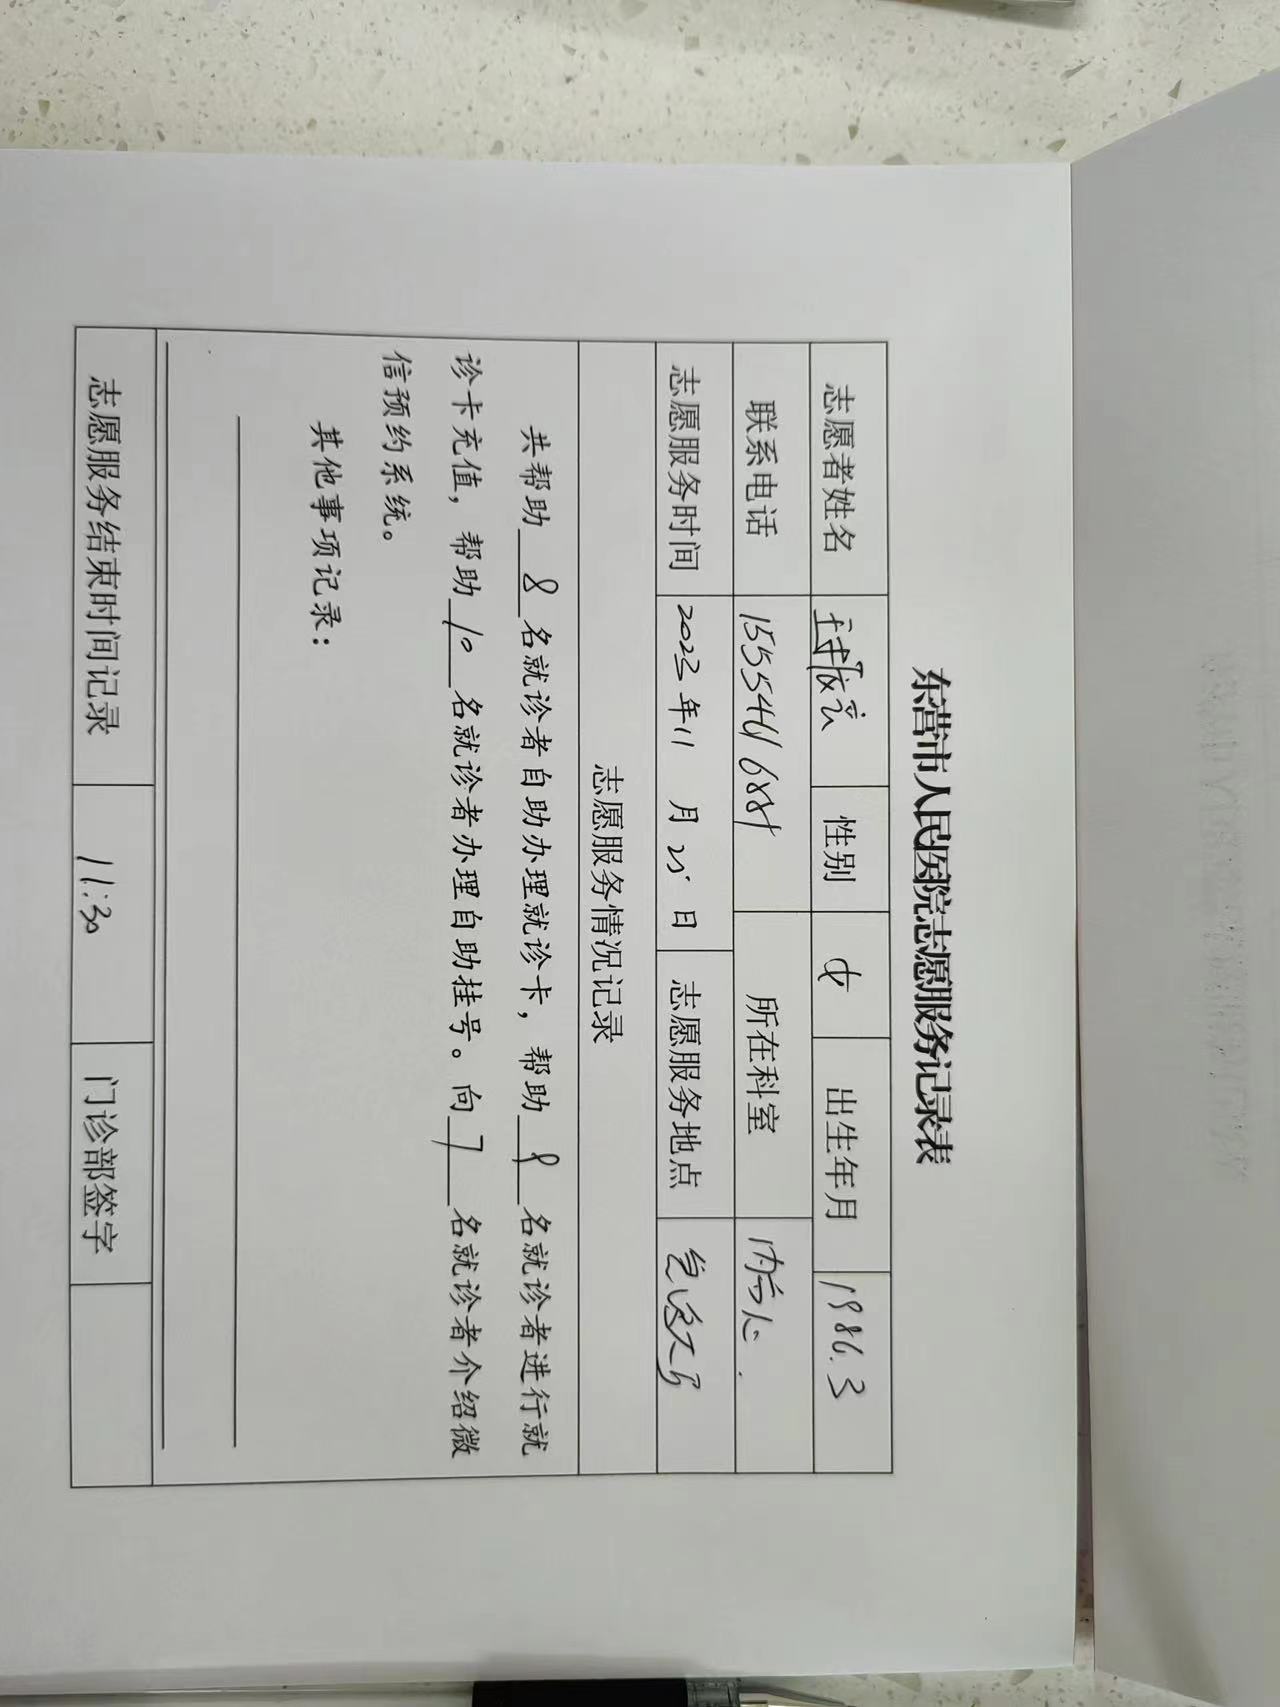 东营市人民医院志愿服务记录表
志愿者姓名 性别 女 出生年月 1986.3
联系电话 所在科室
志愿服务时间 2023年11月25日 志愿服务地点
志愿服务情况记录
共帮助 8 名就诊者自助办理就诊卡，帮助 8 名就诊者进行就
诊卡充值，帮助 10 名就诊者办理自助挂号。向 7 名就诊者介绍微
信预约系统。
其他事项记录：
志愿服务结束时间记录 11:30 门诊部签字